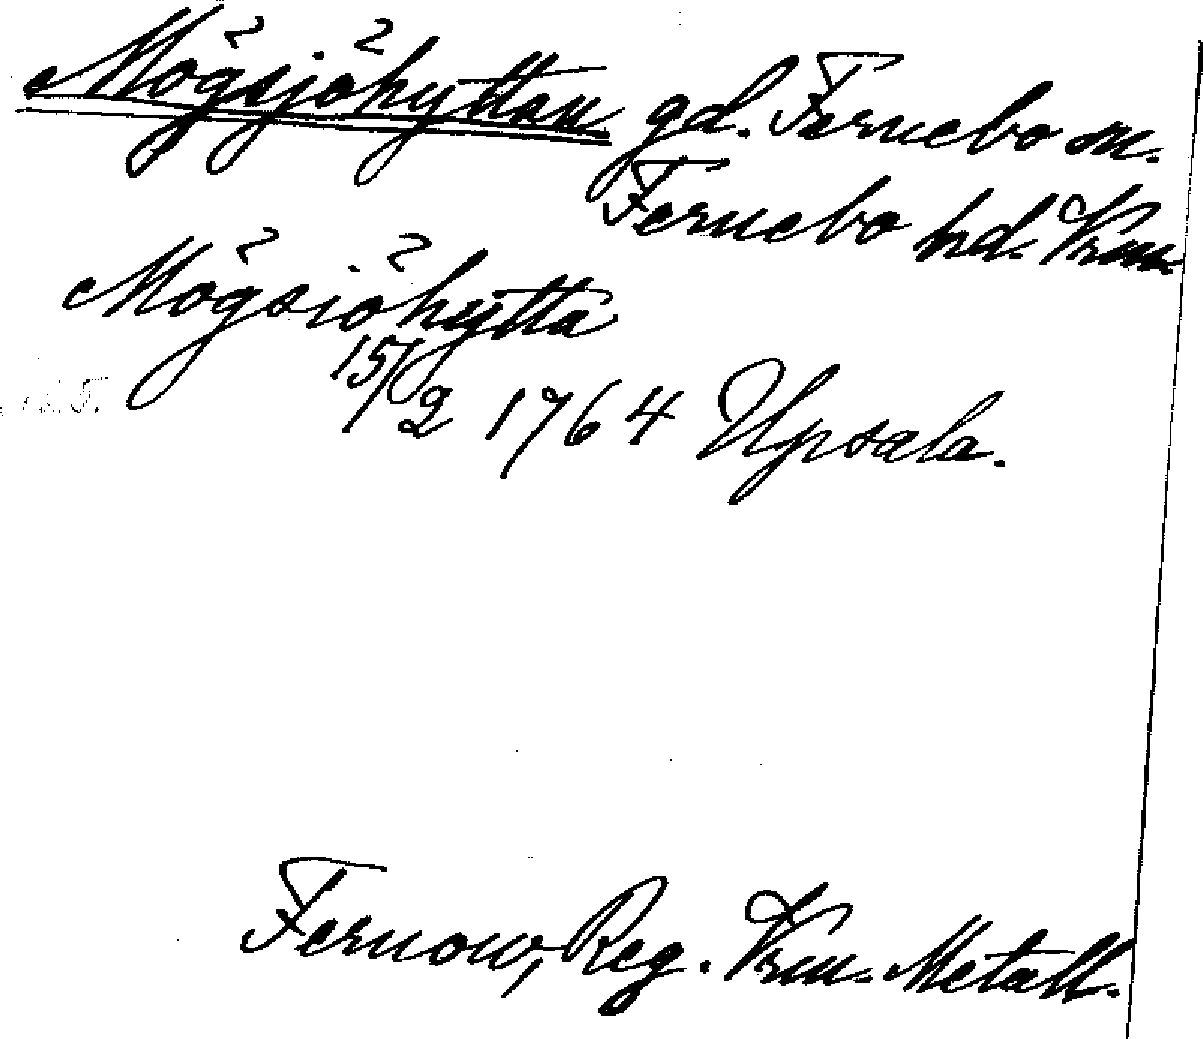 Mögsjöhyttan gd. Fernebo sn.
Fernebo hd. Vrm.
Mögsiöhytta
15/2 1764 Upsala.
Fernow, Reg. Vrm. Metall.